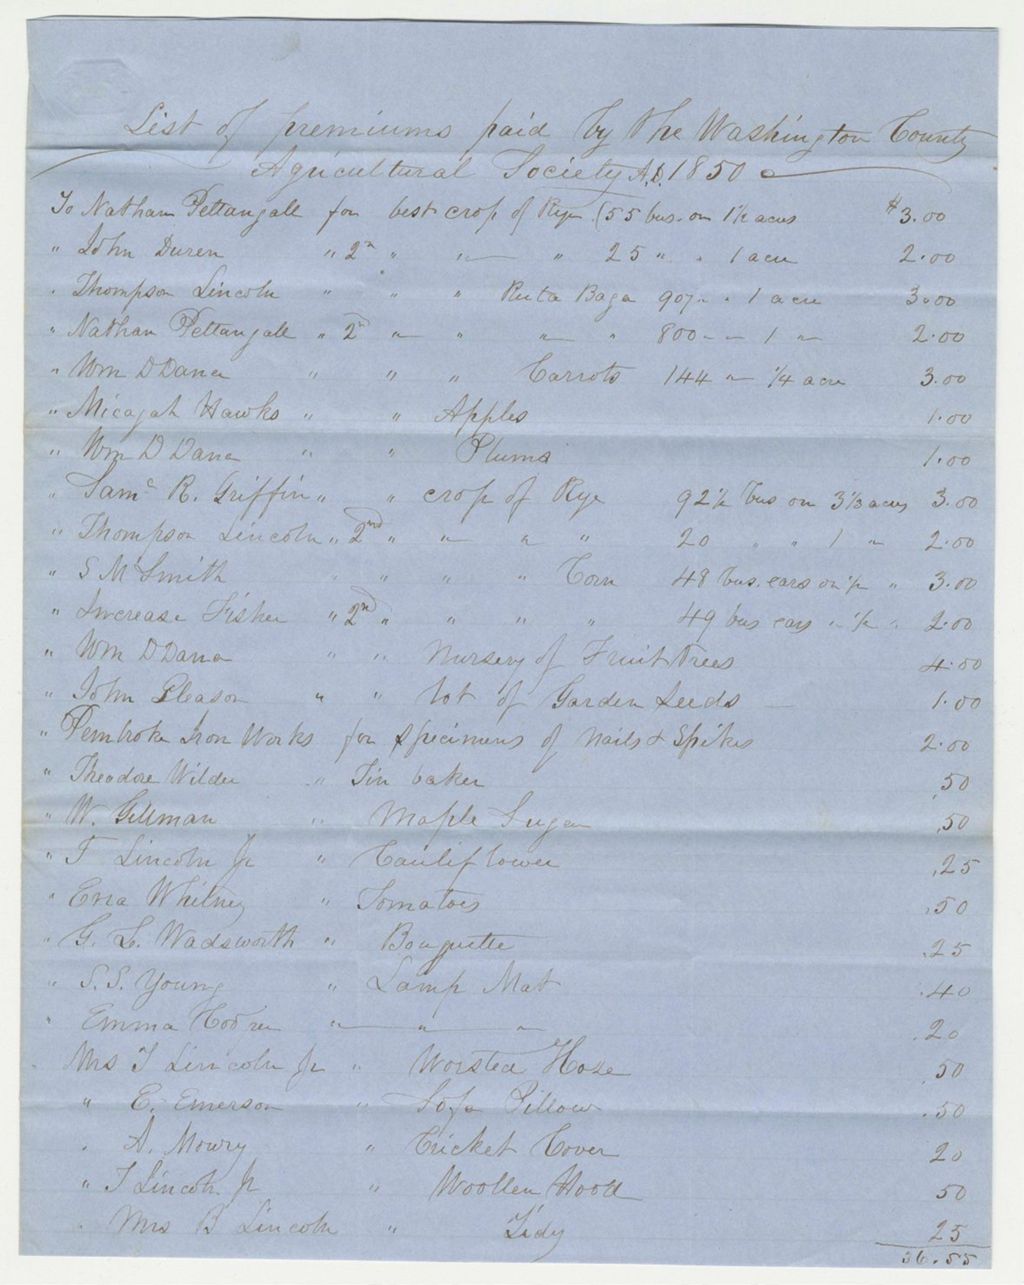 List of premiums paid by the Washington County
Agricultural Society A.D. 1850
To Nathan Pettangall for best crop of Rye (55 bus. on 1 1/2 acres $3.00
" John Duren " 2n " " " 25 " " 1 acre 2.00
" Thompson Lincoln " " " Ruta Baga 907 " " 1 acre 3.00
" Nathan Pettangall " 2n " " " " 800 " " 1 " 2.00
" Wm D Dana " " " Carrots 144 " 1/4 acre 3.00
" Micajah Hawks " " Apples 1.00
" Wm D Dana " " Plums 1.00
" Saml R. Griffin " " crop of Rye 92 1/2 bus on 3 1/3 acres 3.00
" Thompson Lincoln " 2nd " " " " 20 " " 1 " 2.00
" S M Smith " " " " Corn 48 bus. ears on 1/2 " 3.00
" Increase Fisher " 2nd " " " " 49 bus ears " 1/2 " 2.00
" Wm D Dana " " Nursery of Fruit Trees 4.00
" John Gleason " " lot of Garden Seeds 1.00
" Pembroke Iron Works for specimens of nails & Spikes 2.00
" Theodore Wilder " Tin baker .50
" W. Gillman " Maple Sugar .50
" T Lincoln Jr " Cauliflower .25
" Ezra Whitney " Tomatoes .50
" G. L. Wadsworth " Bouquette .25
" S. S. Young " Lamp Mat .40
" Emma " " " .20
" Mrs T Lincoln Jr " Worsted Hose .50
" E. Emerson " Sofa Pillow .50
" A. Mowry " Cricket Cover 20
" T Lincoln Jr " Woollen Hood 50
" Mrs B Lincoln " Tidy 25
36.55